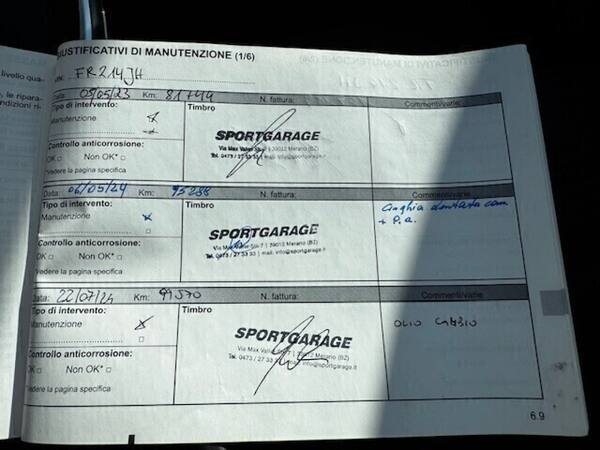 GIUSTIFICATIVI DI MANUTENZIONE (1/6)
VIN: FR214JH
livello qua-
, le ripara-
ndizioni ri-
Data: 05/05/23 Km: 81744 N. fattura: Commenti/varie:
Tipo di intervento:
Manutenzione
Timbro
SPORTGARAGE
Via Max Valier Str. 7 | 39012 Merano (BZ)
Tel. 0473 / 27 33 33 | mail: info@sportgarage.it
Controllo anticorrosione:
OK □ Non OK* □
*Vedere la pagina specifica
Data: 06/05/24 Km: 95288 N. fattura: Commenti/varie:
Tipo di intervento:
Manutenzione
□
Timbro
SPORTGARAGE
Via Max Valier Str. 7 | 39012 Merano (BZ)
Tel. 0473 / 27 33 33 | mail: info@sportgarage.it
Cinghia dentata com
+ P.a.
Controllo anticorrosione:
OK □ Non OK* □
*Vedere la pagina specifica
Data: 22/07/24 Km: 99570 N. fattura: Commenti/varie:
Tipo di intervento:
Manutenzione
□
Timbro
SPORTGARAGE
Via Max Valier Str. 7 | 39012 Merano (BZ)
Tel. 0473 / 27 33 33 | mail: info@sportgarage.it
OLIO CAMBIO
Controllo anticorrosione:
OK □ Non OK* □
*Vedere la pagina specifica
6.9